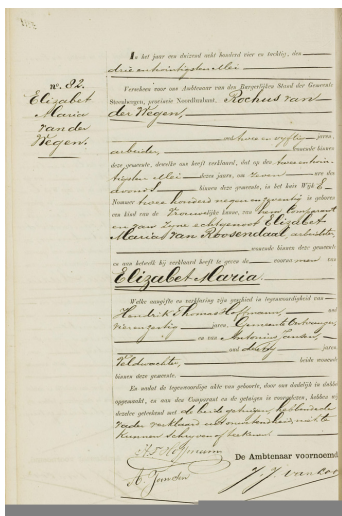 In het jaar een duizend acht honderd vier en tachtig, den
drie en twintigsten Mei
No. 82.
Elizabet
Maria
van der
Wegen.
Verscheen voor ons Ambtenaar van den Burgerlijken Stand der Gemeente
Steenbergen, provincie Noordbrabant, Rochus van
der Wegen,
oud twee en vijftig jaren,
arbeider, wonende binnen
deze gemeente, dewelke ons heeft verklaard, dat op den twee en twin-
tigsten Mei dezes jaars, om zeven ure des
avonds binnen deze gemeente, in het huis Wijk E
Nommer twee honderd negen en zeventig is geboren
een kind van de Vrouwelijke kunne, van hem Comparant
en van zyne echtgenoot Elizabet
Maria van Roosendaal, arbeidster,
wonende binnen deze gemeente
en aan hetwelk hij verklaard heeft te geven de voornamen van
Elizabet Maria.
Welke aangifte en verklaring zijn geschied in tegenwoordigheid van
Hendrik Thomas Hoffmann, oud
vier en zestig jaren, Gemeente Ontvanger,
en van Antonius
oud jaren
Veldwachter, beide wonende
binnen deze gemeente.
En omdat de tegenwoordige akte van geboorte, door ons dadelijk in dubbel
opgemaakt, en aan den Comparant en de getuigen is voorgelezen, hebben wij
dezelve geteekend met de beide getuigen, hebbende
vader verklaard uit onwetendheid niet te
kunnen schrijven of teekenen
H T Hoffmann
De Ambtenaar voornoemd
A.
J. J. van